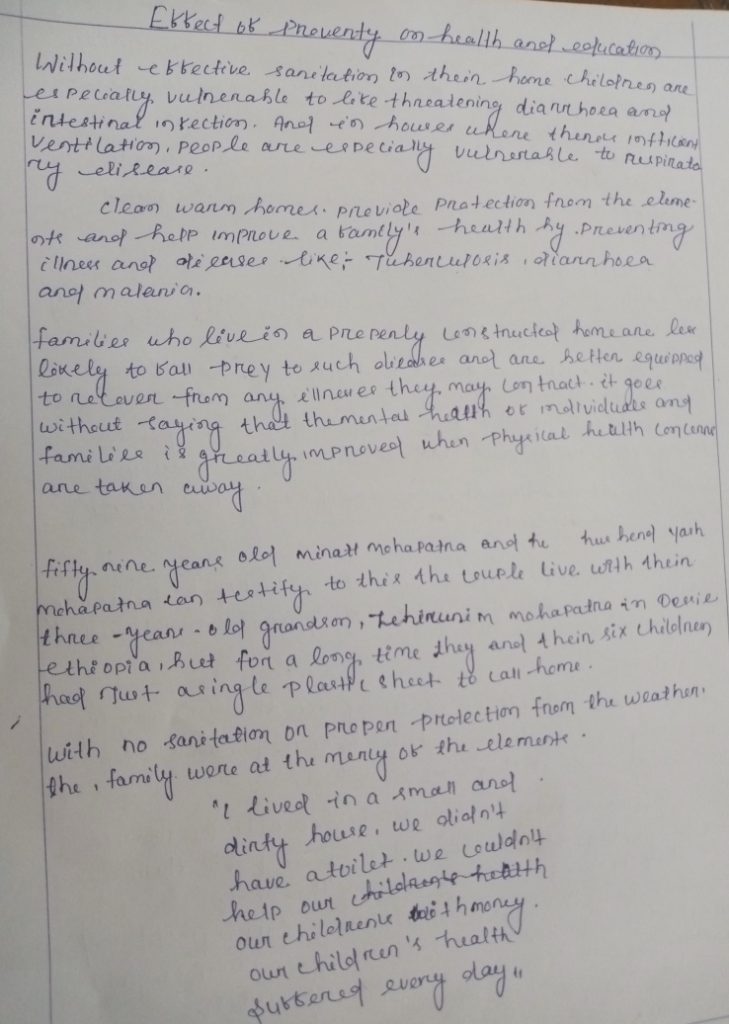 Effect of Proventy on health and education
Without effective sanitation in their home children are
especially vulnerable to life threatening diarrhoea and
intestinal infection. And in houses where there's inffient
ventilation, people are especially vulnerable to respirato
ry disease.
clean warm homes. provide protection from the eleme-
nts and help improve a family's health by preventing
illness and diseases like;- Tuberculosis, diarrhoea
and malaria.
families who live in a properly constructed home are less
likely to fall prey to such disease and are better equipped
to recover from any illnesses they may contract. it goes
without saying that the mental health of individuals and
families is greatly improved when physical health concerns
are taken away.
fifty nine years old minati mohapatra and he husbend yash
mohapatra can testify to this the couple live with their
three-years-old grandson, Zehirunim mohapatra in Desie
ethiopia, but for a long time they and their six children
had just a single plastic sheet to call home.
With no sanitation or proper protection from the weather.
the, family were at the mercy of the elements.
"I lived in a small and
dirty house, we didn't
have a toilet. we couldn't
help our children's health
our childrens with money.
our children's health
suffered every day"